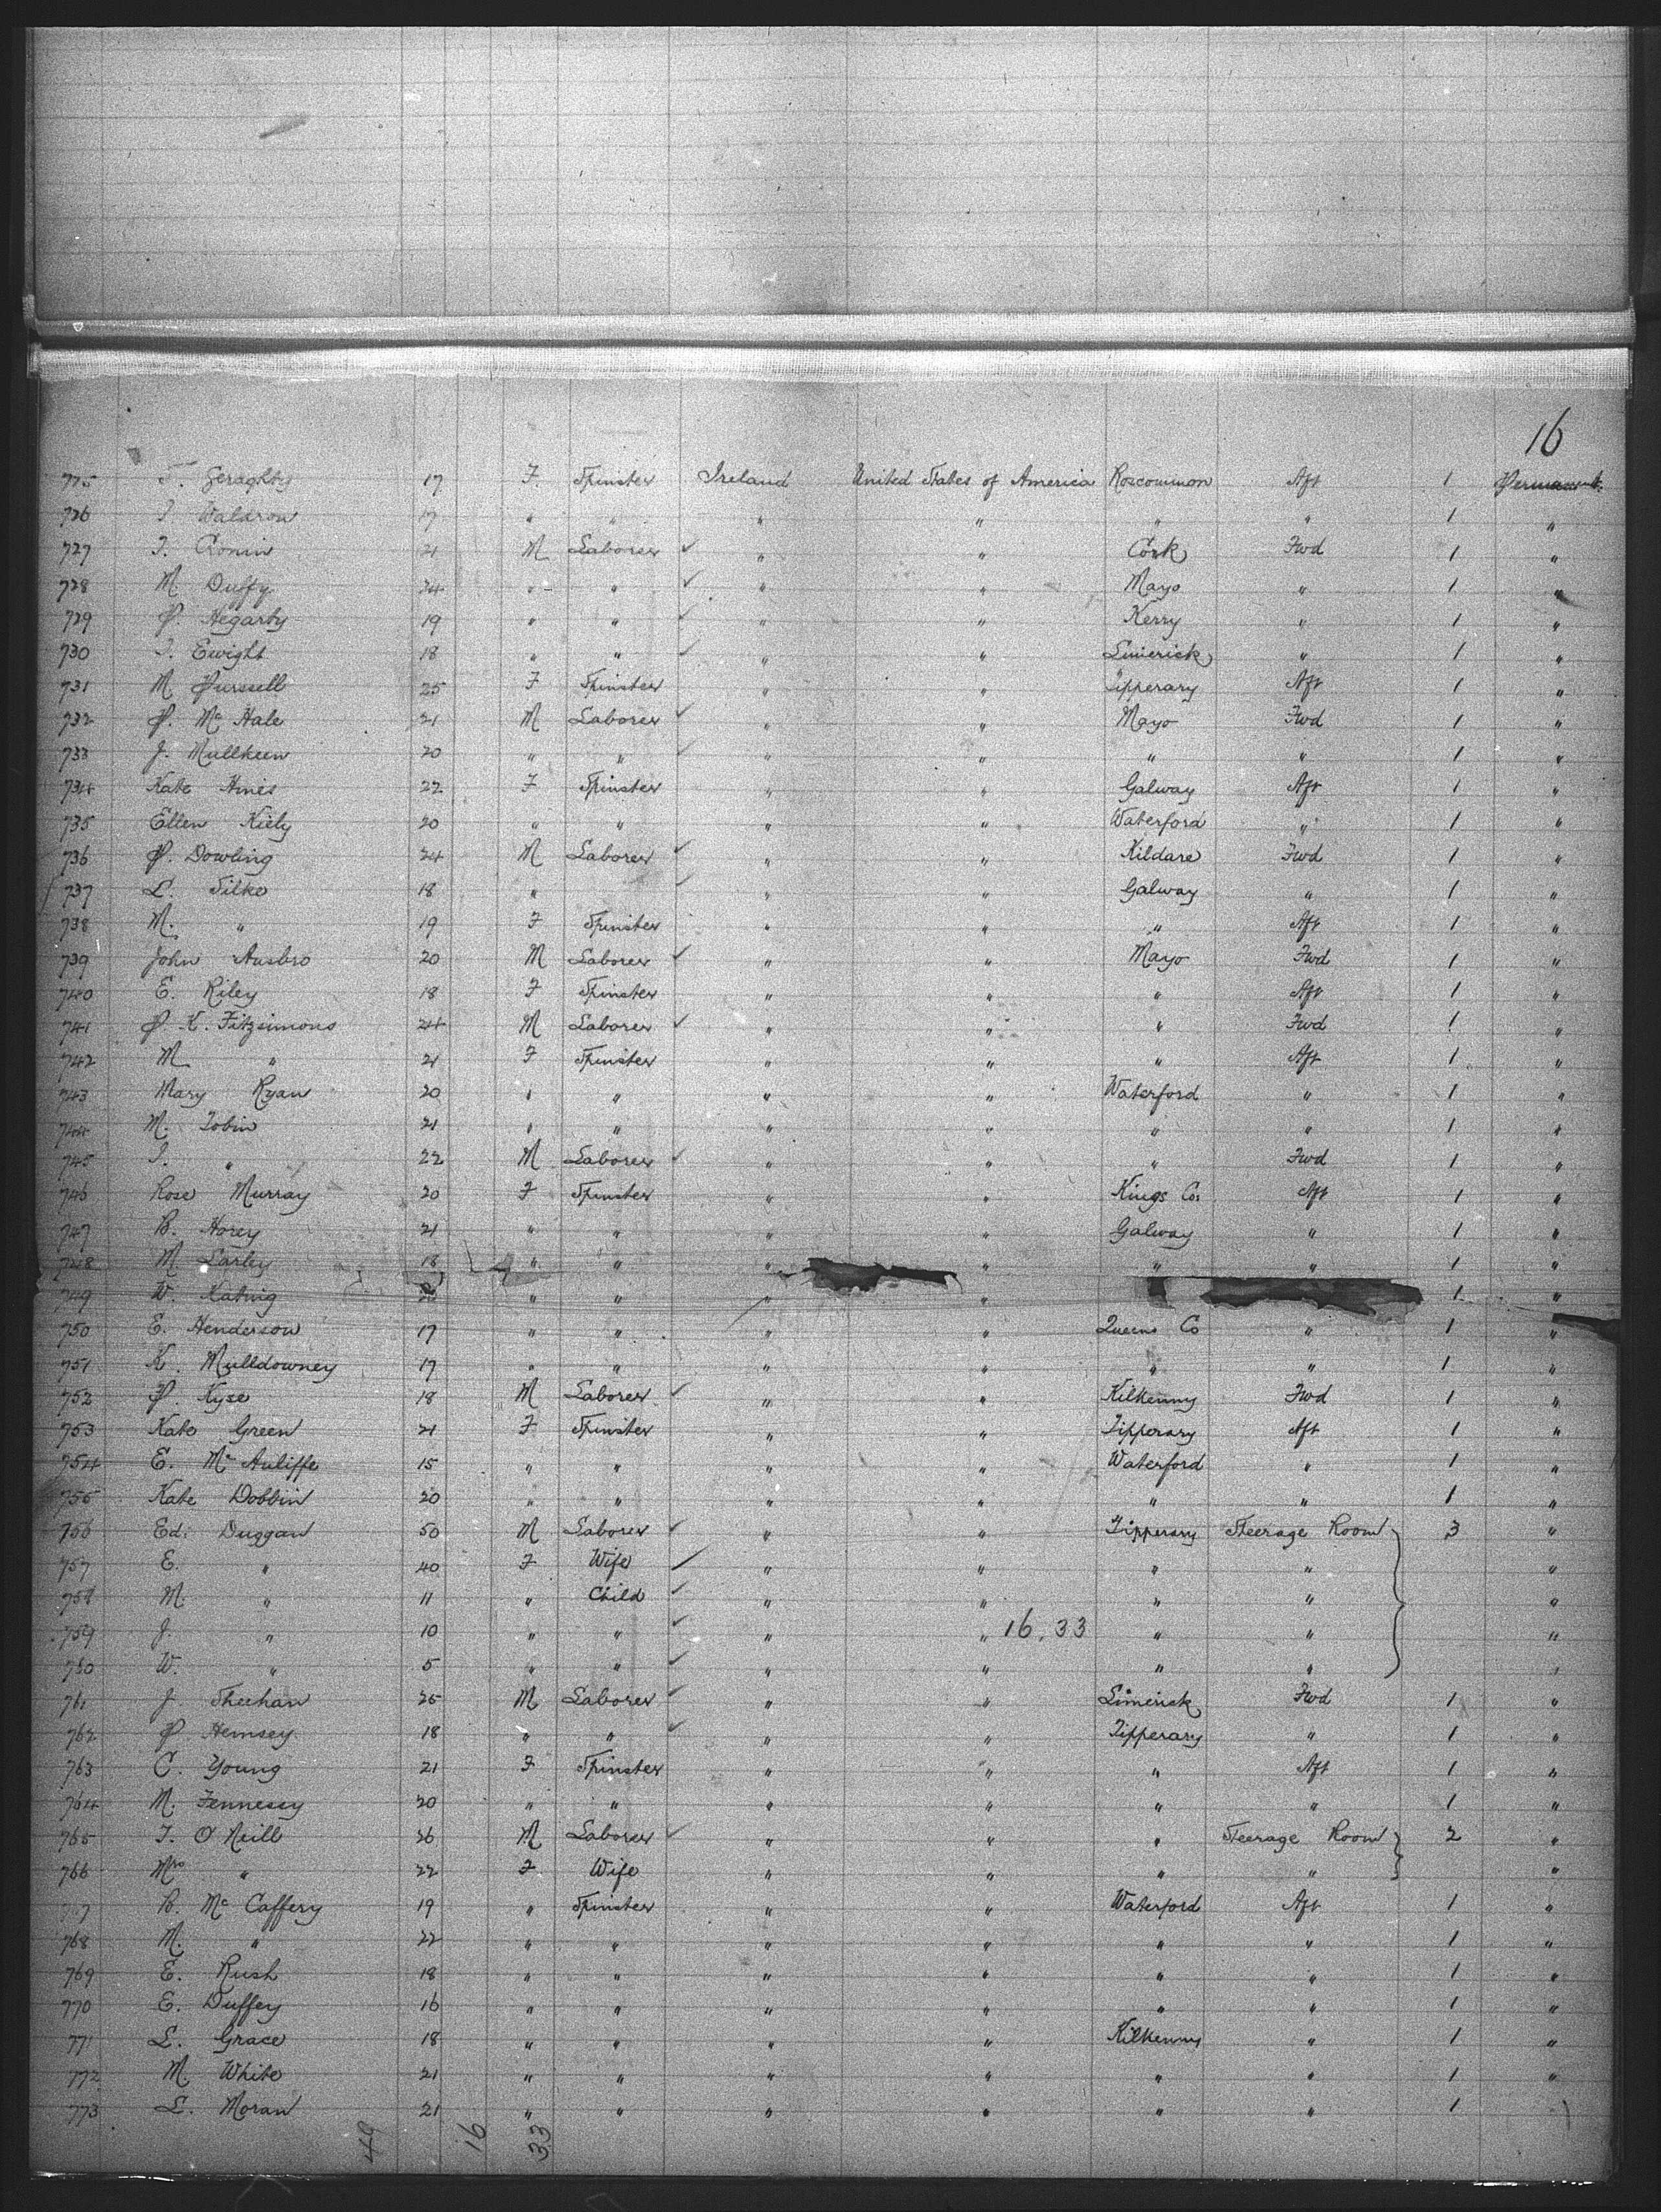 16
725 T. Geraghty 17 F. Spinster Ireland United States of America Roscommon Aft 1 Permanent
726 Waldron 17 " " " " " " 1 "
727 T. Cronin 21 M Laborer ✓ " " Cork Fwd 1 "
728 M Duffy 24 " " ✓ " " Mayo " 1 "
729 P. Hegarty 19 " " ✓ " " Kerry " 1 "
730 18 " " ✓ " " Limerick " 1 "
731 M Purssell 25 F Spinster " " Tipperary Aft 1 "
732 P. Mc Hale 21 M Laborer ✓ " " Mayo Fwd 1 "
733 J. Mullkeen 20 " " ✓ " " " " 1 "
734 Kate Hines 22 F Spinster " " Galway Aft 1 "
735 Ellen Kiely 20 " " " " Waterford " 1 "
736 P. Dowling 24 M Laborer ✓ " " Kildare Fwd 1 "
737 L. Silke 18 " ✓ " " Galway " 1 "
738 M. " 19 F Spinster " " " Aft 1 "
739 John Ansbro 20 M Laborer ✓ " " Mayo Fwd 1 "
740 E. Riley 18 F Spinster " " " Aft 1 "
741 P. K. Fitzsimons 24 M Laborer ✓ " " " Fwd 1 "
742 M " 21 F Spinster " " " Aft 1 "
743 Mary Ryan 20 " " " " Waterford " 1 "
744 M. Tobin 21 " " " " " " 1 "
745 " 22 M Laborer ✓ " " " Fwd 1 "
746 Rose Murray 20 F Spinster " " Kings Co. Aft 1 "
747 B. Horey 21 " " " " Galway " 1 "
748 M 18 " " " " " " 1 "
749 W. " " " " 1 "
750 E. Henderson 17 " " " " Queens Co " 1 "
751 K. Mulldowney 17 " " " " " " 1 "
752 P. Kyse 18 M Laborer ✓ " " Kilkenny Fwd 1 "
753 Kate Green 21 F Spinster " " Tipperary Aft 1 "
754 E. Mc Auliffe 15 " " " " Waterford " 1 "
755 Kate Dobbin 20 " " " " " " 1 "
756 Ed: Duggan 50 M Laborer ✓ " " Tipperary Steerage Room 3 "
757 E. " 40 F Wife ✓ " " " " "
758 M. " 11 " Child ✓ " " " " "
759 J. " 10 " " ✓ " " 16.33 " " "
760 W. " 5 " " ✓ " " " " "
761 J. Sheehan 25 M Laborer ✓ " " Limerick Fwd 1 "
762 P Hemsey 18 " " ✓ " " Tipperary " 1 "
763 C. Young 21 F Spinster " " " Aft 1 "
764 M. Fennessy 20 " " " " " " 1 "
765 T. O'Neill 26 M Laborer ✓ " " " Steerage Room 2 "
766 Mrs " 22 F Wife " " " " "
767 B. Mc Caffery 19 " Spinster " " Waterford Aft 1 "
768 M. " 22 " " " " " " 1 "
769 E. Rush 18 " " " " " " 1 "
770 E. Duffey 16 " " " " " " 1 "
771 L. Grace 18 " " " " Kilkenny " 1 "
772 M. White 21 " " " " " " 1 "
773 L. Moran 21 " " " " " " 1
49 16 33